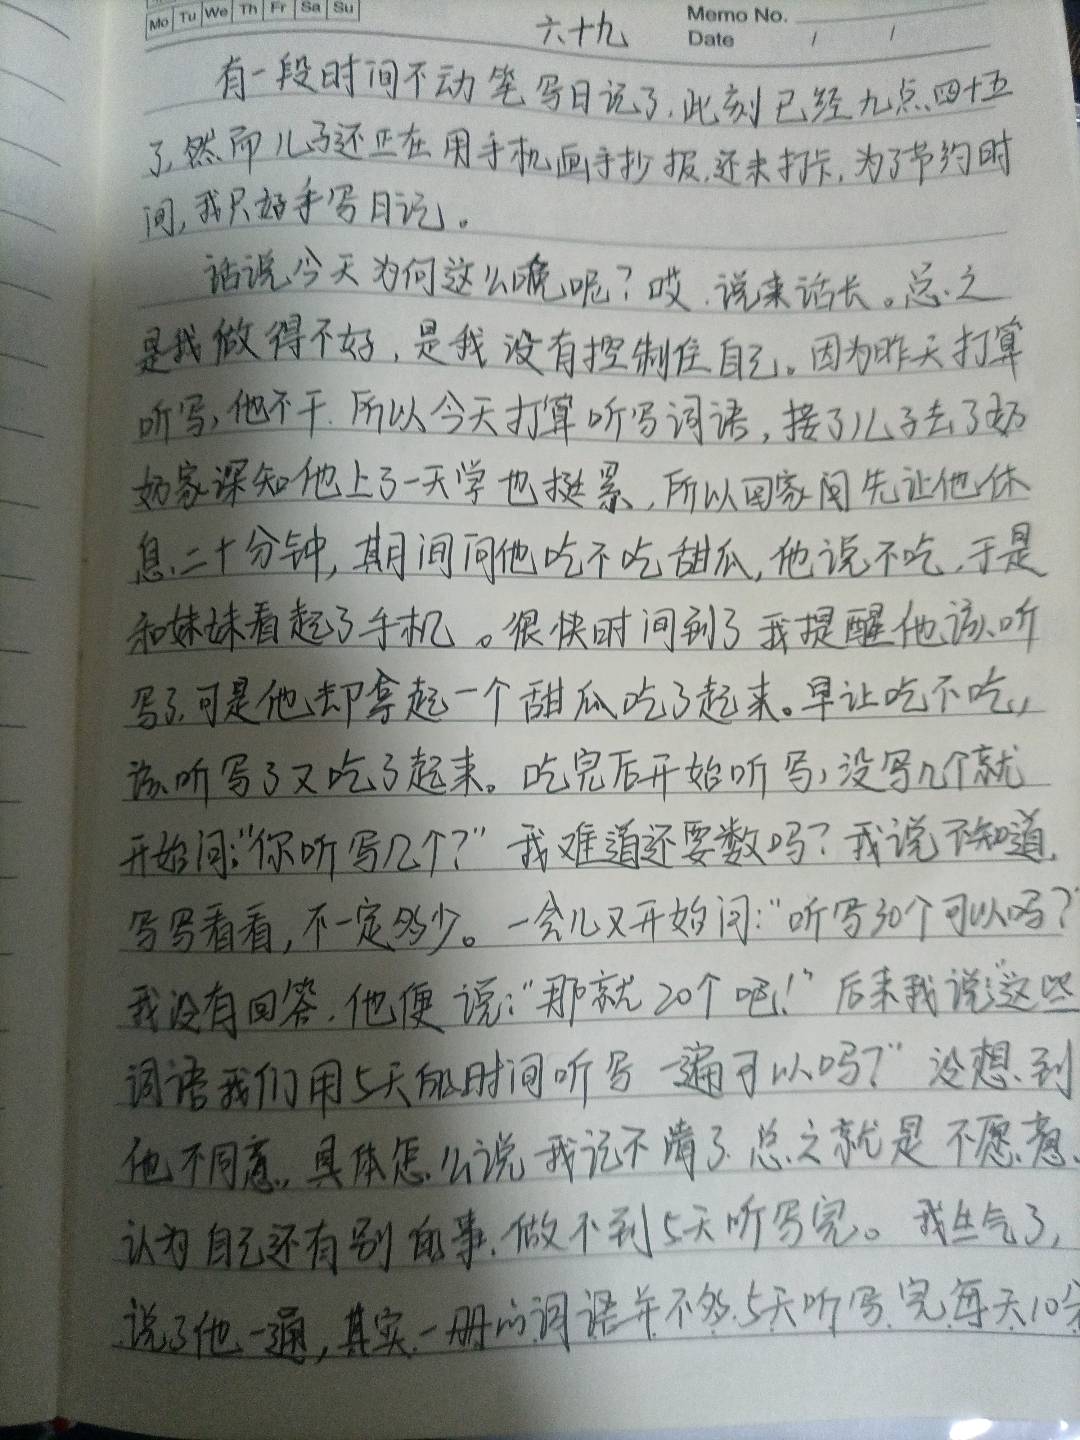 Mo Tu We Th Fr Sa Su
Memo No.
Date / /
六十九
有一段时间不动笔写日记了,此刻已经九点四十五
了,然而儿子还正在用手机画手抄报,还未打卡,为了节约时
间,我只好手写日记。
话说今天为何这么晚呢?哎,说来话长。总之
是我做得不好,是我没有控制住自己。因为昨天打算
听写,他不干,所以今天打算听写词语,接了儿子去了奶
奶家深知他上了一天学也挺累,所以回家间先让他休
息二十分钟,期间问他吃不吃甜瓜,他说不吃,于是
和妹妹看起了手机。很快时间到了我提醒他该听
写了,可是他却拿起一个甜瓜吃了起来。早让吃不吃,
该听写了又吃了起来。吃完后开始听写,没写几个就
开始问:“你听写几个?”我难道还要数吗?我说不知道,
写写看看,不一定多少。一会儿又开始问:“听写30个可以吗?
我没有回答,他便说:“那就20个吧!”后来我说:“这些
词语我们用5天的时间听写一遍可以吗?”没想到
他不同意,具体怎么说我记不清了,总之就是不愿意,
认为自己还有别的事,做不到5天听写完。我生气了,
说了他一通,其实一册的词语并不够5天听写完,每天10分